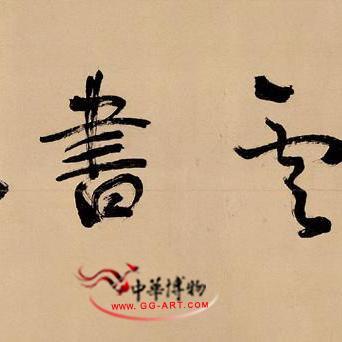 云書
中華博物
WWW.GG-ART.COM